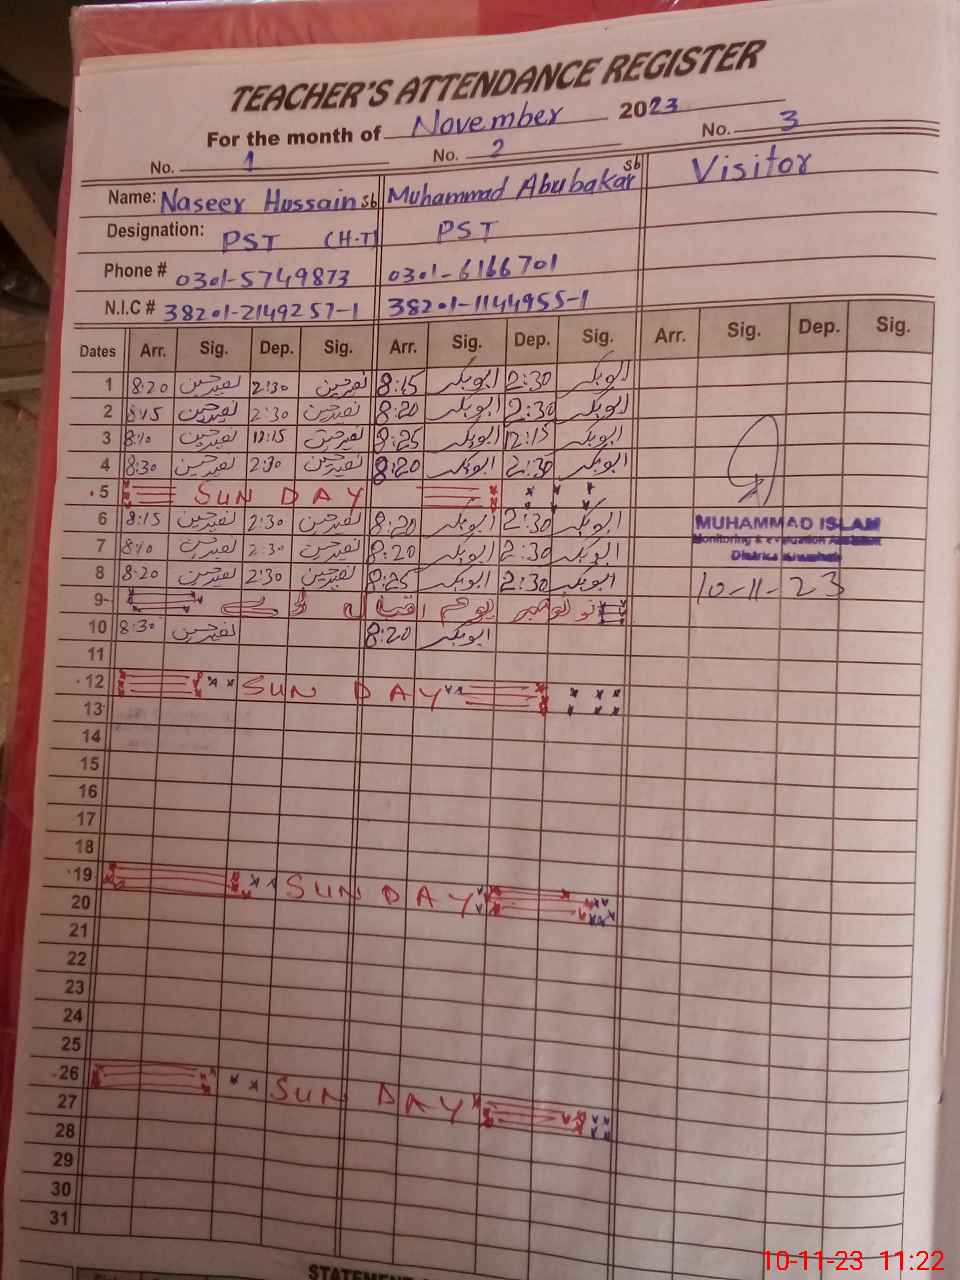 TEACHER'S ATTENDANCE REGISTER
For the month of November 2023
No. 1 No. 2 No. 3
Name: Naseer Hussain sb Muhammad Abubakar sb Visitor
Designation: PST (H.T) PST
Phone # 0301-5749873 0301-6166701
N.I.C # 38201-2149257-1 38201-1144955-1
Dates Arr. Sig. Dep. Sig. Arr. Sig. Dep. Sig. Arr. Sig. Dep. Sig.
1 8:20 نصیر حسین 2:30 نصیر حسین 8:15 ابوبکر 2:30 ابوبکر
2 8:15 نصیر حسین 2:30 نصیر حسین 8:20 ابوبکر 2:30 ابوبکر
3 8:10 نصیر حسین 12:15 نصیر حسین 8:25 ابوبکر 12:15 ابوبکر
4 8:30 نصیر حسین 2:30 نصیر حسین 8:20 ابوبکر 2:30 ابوبکر
5 SUNDAY
6 8:15 نصیر حسین 2:30 نصیر حسین 8:20 ابوبکر 2:30 ابوبکر
MUHAMMAD ISLAM
7 8:10 نصیر حسین 2:30 نصیر حسین 8:20 ابوبکر 2:30 ابوبکر
Monitoring & evaluation Assistant
District Khushab
8 8:20 نصیر حسین 2:30 نصیر حسین 8:25 ابوبکر 2:30 ابوبکر
10-11-23
9 نو نومبر یوم اقبال
10 8:30 نصیر حسین 8:20 ابوبکر
11
12 SUNDAY
13
14
15
16
17
18
19 SUNDAY
20
21
22
23
24
25
26 SUNDAY
27
28
29
30
31
10-11-23 11:22